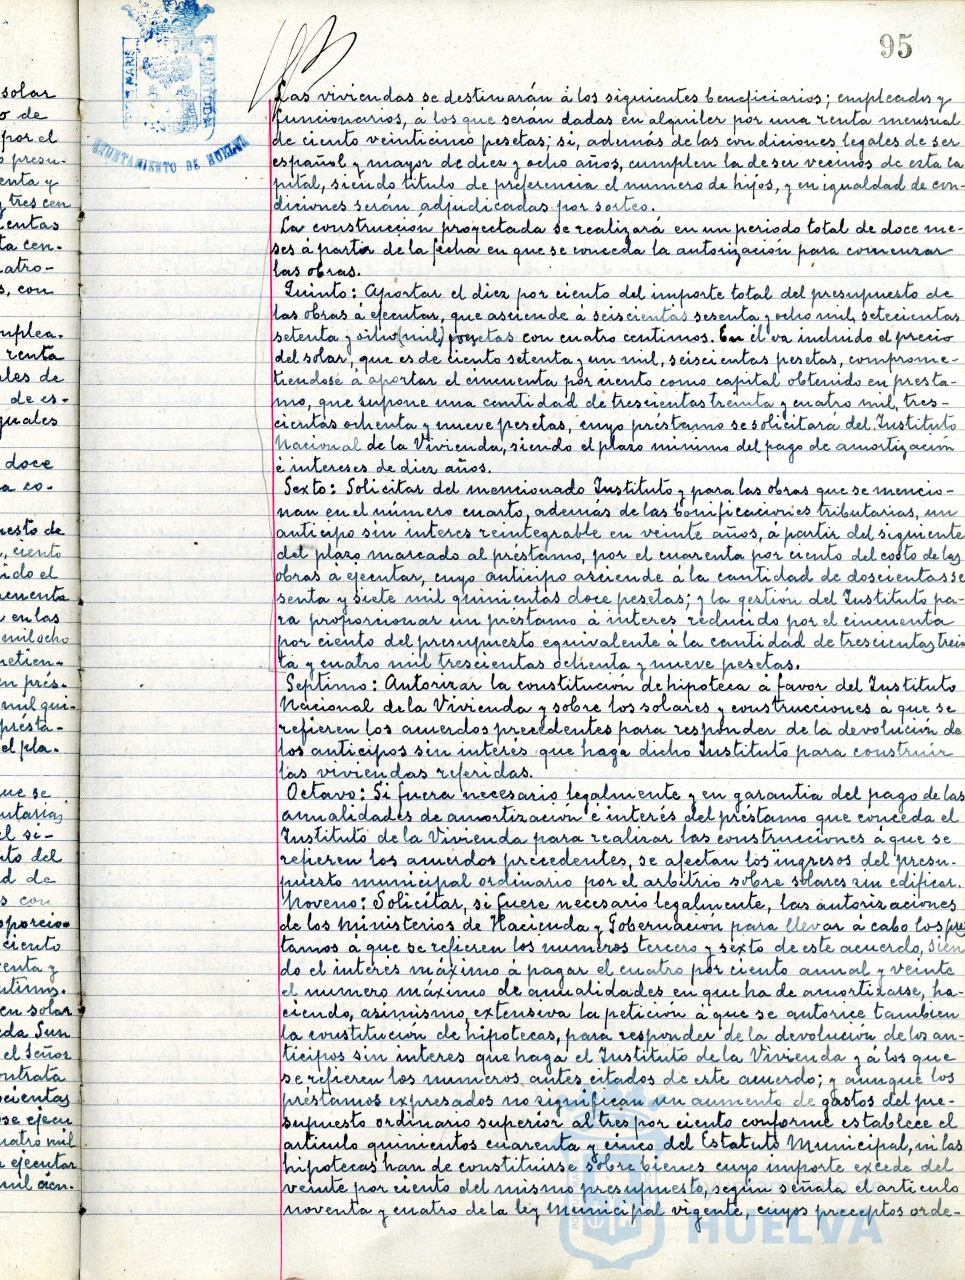 95
AYUNTAMIENTO DE HUELVA
solar
o de
por el
presu-
enta y
y tres cen
entas
ta cen-
atro-
s, con
mplea-
renta
ales de
de es-
guales
doce
a co-
uesto de
ciento
ido el
cuenta
en las
mil ocho
setien-
en prés-
mil qui-
présta-
el pla-
que se
utarias
el si-
to del
d de
s con
oporcio-
ciento
enta y
ntimos.
en solar
eda Sun
el Señor
ontrata
scientas
ose ejecu
cuatro mil
ejecutar
mil cien-
Las viviendas se destinarán á los siguientes beneficiarios; empleados y
funcionarios, á los que serán dadas en alquiler por una renta mensual
de ciento veinticinco pesetas; si, además de las condiciones legales de ser
español y mayor de diez y ocho años, cumplen la de ser vecinos de esta ca
pital, siendo titulo de preferencia el numero de hijos, y en igualdad de con-
diciones serán adjudicadas por sorteo.
La construcción proyectada se realizará en un periodo total de doce me-
ses á partir de la fecha en que se conceda la autorización para comenzar
las obras.
Quinto: Aportar el diez por ciento del importe total del presupuesto de
las obras á ejecutar, que asciende á seiscientas sesenta y ocho mil, setecientas
setenta y ocho (mil) pesetas con cuatro centimos. En él va incluido el precio
del solar, que es de ciento setenta y un mil, seiscientas pesetas, comprome-
tiendosé á aportar el cincuenta por ciento como capital obtenido en presta-
mo, que supone una cantidad de trescientas treinta y cuatro mil, tres-
cientas ochenta y nueve pesetas, cuyo préstamo se solicitará del Instituto
Nacional de la Vivienda, siendo el plazo minimo del pago de amortización
é intereses de diez años.
Sexto: Solicitar del mencionado Instituto y para las obras que se mencio-
nan en el número cuarto, además de las bonificaciones tributarias, un
anticipo sin interes reintegrable en veinte años, á partir del siguiente
del plazo marcado al préstamo, por el cuarenta por ciento del costo de las
obras á ejecutar, cuyo anticipo asciende á la cantidad de doscientas se
senta y siete mil quinientas doce pesetas; y la gestión del Instituto pa-
ra proporcionar un préstamo á interes reducido por el cincuenta
por ciento del presupuesto equivalente á la cantidad de trescientas trein
ta y cuatro mil trescientas ochenta y nueve pesetas.
Septimo: Autorizar la constitución de hipoteca á favor del Instituto
Nacional de la Vivienda y sobre los solares y construcciones á que se
refieren los acuerdos precedentes para responder de la devolución de
los anticipos sin interés que haga dicho Instituto para construir
las viviendas referidas.
Octavo: Si fuera necesario legalmente y en garantia del pago de las
anualidades de amortización é interés del préstamo que conceda el
Instituto de la Vivienda para realizar las construcciones á que se
refieren los acuerdos precedentes, se afectan los ingresos del presu-
puesto municipal ordinario por el arbitrio sobre solares sin edificar.
Noveno: Solicitar, si fuere necesario legalmente, las autorizaciones
de los Ministerios de Hacienda y Gobernación para llevar á cabo los prés
tamos á que se refieren los numeros tercero y sexto de este acuerdo, sien
do el interés máximo á pagar el cuatro por ciento anual y veinte
el numero máximo de anualidades en que ha de amortizarse, ha-
ciendo, asimismo, extensiva la petición á que se autorice tambien
la constitución de hipotecas, para responder de la devolución de los an-
ticipos sin interes que haga el Instituto de la Vivienda y á los que
se refieren los numeros antes citados de este acuerdo; y aunque los
préstamos expresados no significan un aumento de gastos del pre-
supuesto ordinario superior al tres por ciento conforme establece el
articulo quinientos cuarenta y cinco del Estatuto Municipal, ni las
hipotecas han de constituirse sobre bienes cuyo importe excede del
veinte por ciento del mismo presupuesto, según señala el articulo
noventa y cuatro de la ley Municipal vigente, cuyos preceptos orde-
HUELVA